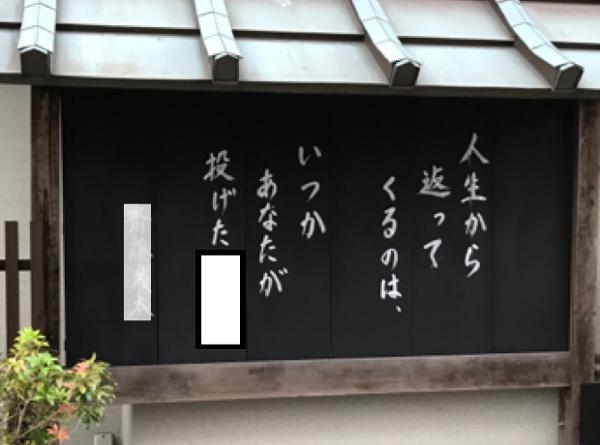 人生から
返って
くるのは、
いつか
あなたが
投げた